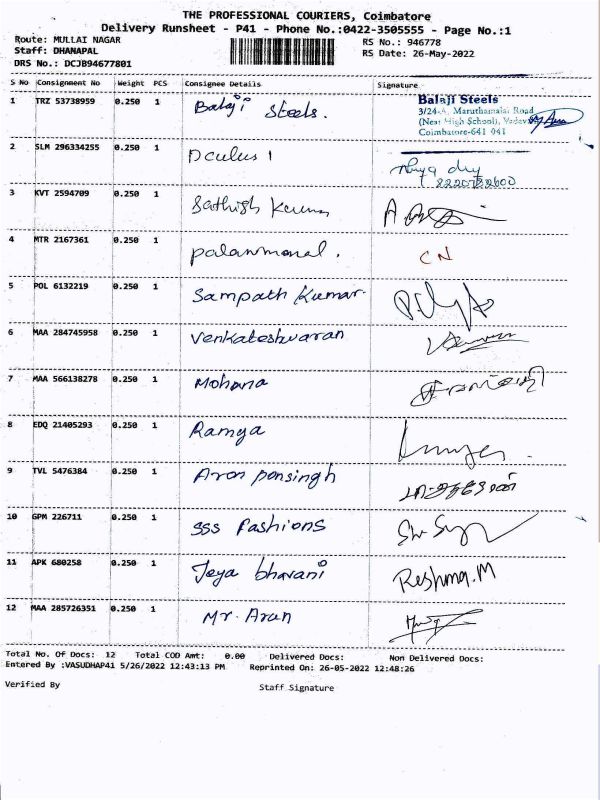 THE PROFESSIONAL COURIERS, Coimbatore
Delivery Runsheet - P41 - Phone No.:0422-3505555 - Page No.:1
Route: MULLAI NAGAR RS No.: 946778
Staff: DHANAPAL RS Date: 26-May-2022
DRS No.: DCJB94677801
S No Consignment No Weight PCS Consignee Details Signature
1 TRZ 53738959 0.250 1 Balaji Steels. Balaji Steels
3/24-A, Maruthamalai Road
(Near High School),
Coimbatore-641 041
2 SLM 296334255 0.250 1
3 KVT 2594709 0.250 1 Sathish Kumar
4 MTR 2167361 0.250 1 CN
5 POL 6132219 0.250 1 Sampath Kumar
6 MAA 284745958 0.250 1 Venkateshwaran
7 MAA 566138278 0.250 1 Mohana
8 EDQ 21405293 0.250 1 Ramya
9 TVL 5476384 0.250 1 Aron ponsingh
10 GPM 226711 0.250 1 SSS Fashions
11 APK 680258 0.250 1 Jeya bhavani Reshma.M
12 MAA 285726351 0.250 1 Mr. Arun
Total No. Of Docs: 12 Total COD Amt: 0.00 Delivered Docs: Non Delivered Docs:
Entered By :VASUDHAP41 5/26/2022 12:43:13 PM Reprinted On: 26-05-2022 12:48:26
Verified By Staff Signature